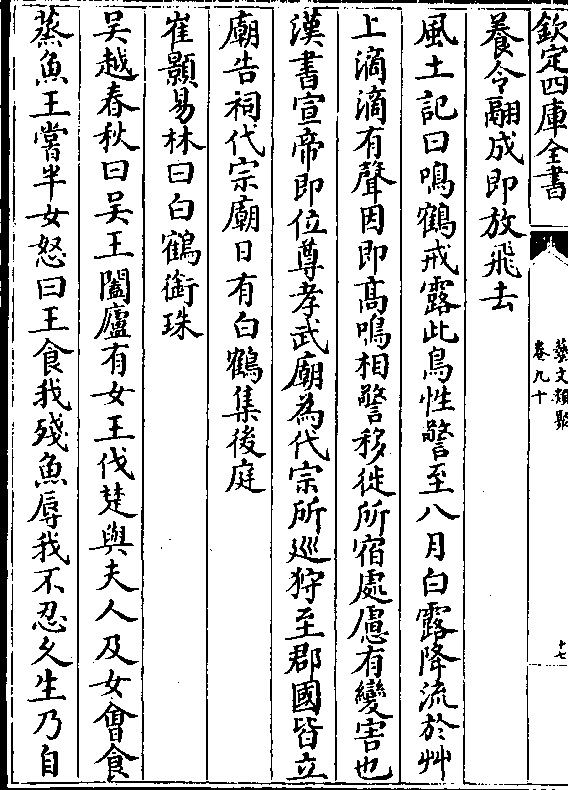 欽定四庫全書
藝文類聚
卷九十
十七
養令翮成即放飛去
風土記曰鳴鶴戒露此鳥性警至八月白露降流於艸
上滴滴有聲因即高鳴相警移徙所宿處慮有變害也
漢書宣帝即位尊孝武廟為代宗所廵狩至郡國皆立
廟告祠代宗廟日有白鶴集後庭
崔顥易林曰白鶴銜珠
吳越春秋曰吳王闔廬有女王伐楚與夫人及女㑹食
蒸魚王嘗半女怒曰王食我殘魚辱我不忍乆生乃自